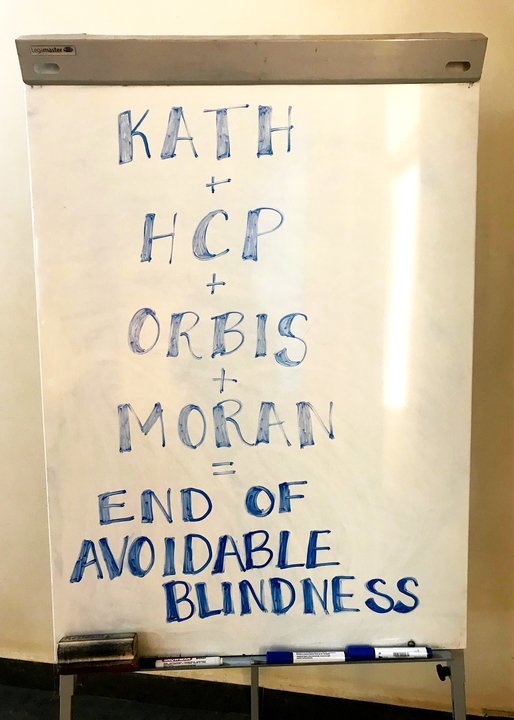 Legamaster
KATH
+
HCP
+
ORBIS
+
MORAN
=
END OF
AVOIDABLE
BLINDNESS